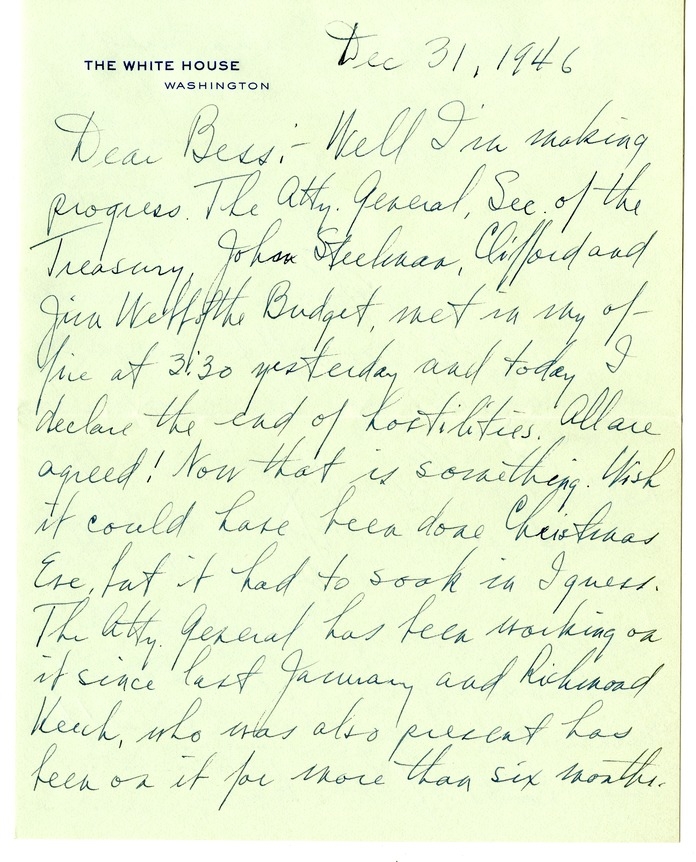 THE WHITE HOUSE
WASHINGTON
Dec 31, 1946
Dear Bess:- Well I'm making
progress. The Atty. General, Sec. of the
Treasury, John Steelman, Clifford and
Jim Webb of the Budget, met in my of-
fice at 3:30 yesterday and today I
declare the end of hostilities. All are
agreed! Now that is something. Wish
it could have been done Christmas
Eve, but it had to soak in I guess.
The Atty. General has been working on
it since last January and Richmond
Keech, who was also present has
been on it for more than six months.